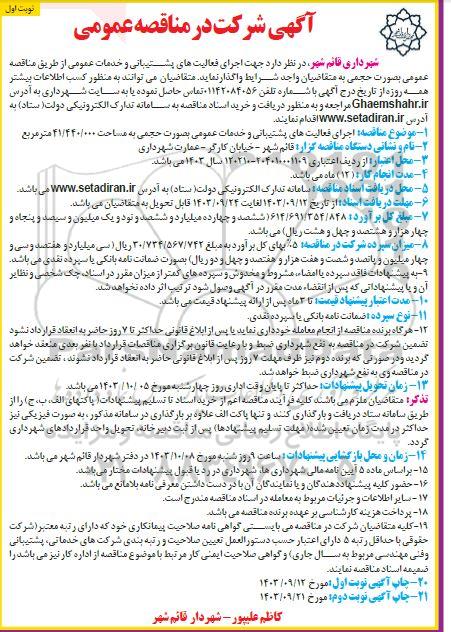 نوبت اول
آگهی شرکت در مناقصه عمومی
شهرداری قائم شهر، در نظر دارد جهت اجرای فعالیت های پشتیبانی و خدمات عمومی از طریق مناقصه
عمومی بصورت حجمی به متقاضیان واجد شرایط واگذار نماید. متقاضیان می توانند به منظور کسب اطلاعات بیشتر
همه روزه از تاریخ درج آگهی با شماره تلفن ۰۱۱۴۲۰۸۴۰۵۶ تماس حاصل نموده یا به سایت شهرداری به آدرس
Ghaemshahr.ir مراجعه و به منظور دریافت و خرید اسناد مناقصه به سامانه تدارک الکترونیکی دولت( ستاد) به
آدرس www.setadiran.ir اقدام نمایند.
۱-موضوع مناقصه: اجرای فعالیت های پشتیبانی و خدمات عمومی بصورت حجمی به مساحت ۴۱/۴۴۰/۰۰۰ مترمربع
۲-نام و نشانی دستگاه مناقصه گزار: قائم شهر -خیابان کارگر - عمارت شهرداری
۳- محل اعتبار: از ردیف اعتباری ۲۰۴۰۱۰۰۰۱۱۰۹-۱۲۰۲۱۰ سال ۱۴۰۳ می باشد.
۴-مدت انجام کار: (۱۲) ماه می باشد.
۵- محل دریافت اسناد مناقصه: سامانه تدارک الکترونیکی دولت( ستاد) به آدرس www.setadiran.ir می باشد.
۶-مهلت دریافت اسناد: از تاریخ ۱۴۰۳/۰۹/۱۲ لغایت ۱۴۰۳/۰۹/۲۴ قابل تحویل به متقاضیان می باشد.
۷- مبلغ کل برآورد : ۶۱۴/۶۹۱/۳۵۴/۸۴۸ (ششصد و چهارده میلیارد و ششصد و نود و یک میلیون و سیصد و پنجاه و
چهار هزار و هشتصد و چهل و هشت ریال) می باشد.
۸-میزان سپرده شرکت در مناقصه: ۵٪ بهای کل برآورد به مبلغ ۳۰/۷۳۴/۵۶۷/۷۴۲ ریال (سی میلیارد و هفتصد و سی و
چهار میلیون و پانصد و شصت و هفت هزار و هفتصد و چهل و دو ریال) بصورت ضمانت نامه بانکی یا سپرده نقدی می باشد.
۹-به پیشنهادات فاقد سپرده یا امضاء، مشروط و مخدوش و سپرده های کمتر از میزان مقرر در اسناد، چک شخصی و نظایر
آن و یا پیشنهاداتی که پس از انقضاء مدت مقرر در آگهی وصول شود ترتیب اثر داده نخواهد شد.
۱۰- مدت اعتبار پیشنهاد قیمت: تا ۳ ماه پس از ارائه پیشنهاد قیمت می باشد.
۱۱- نوع سپرده: ضمانت نامه بانکی یا سپرده نقدی.
۱۲- هرگاه برنده مناقصه از انجام معامله خودداری نماید یا پس از ابلاغ قانونی حداکثر تا ۷ روز حاضر به انعقاد قرارداد نشود
تضمین شرکت در مناقصه به نفع شهرداری ضبط و با رعایت قانون برگزاری مناقصات قرارداد با نفر بعدی منعقد خواهد
گردید و در صورتی که برنده دوم نیز ظرف مهلت ۷ روز پس از ابلاغ قانونی حاضر به انعقاد قرارداد نشوند ، تضمین شرکت
در مناقصه وی به نفع شهرداری ضبط خواهد شد.
۱۳- زمان تحویل پیشنهادات: حداکثر تا پایان وقت اداری روز چهارشنبه مورخ ۱۴۰۳/۱۰/۰۵ می باشد.
تذکر: متقاضیان ملزم می باشند کلیه فرآیند مناقصه اعم از خرید اسناد تا تسلیم پیشنهادات( پاکتهای الف، ب، ج) را از
طریق سامانه ستاد دریافت و بارگذاری کنند و تنها پاکت الف علاوه بر بارگذاری در سامانه مذکور، به صورت فیزیکی نیز
حداکثر در مدت زمان تعیین شده (مهلت تسلیم پیشنهادها) پس از ثبت دبیرخانه، تحویل واحد قراردادهای شهرداری
گردد.
۱۴-زمان و محل بازگشایی پیشنهادات : ساعت ۹ روز شنبه مورخ ۱۴۰۳/۱۰/۰۸ در دفتر شهردار قائم شهر می باشد.
۱۵- براساس ماده ۵ آیین نامه مالی شهرداری ها، شهرداری در رد یا قبول پیشنهادات مختار می باشد.
۱۶-حضور کلیه پیشنهاددهندگان و یا نمایندگان آن با در دست داشتن معرفی نامه بلامانع می باشد.
۱۷- سایر اطلاعات و جزئیات مربوط به معامله در اسناد مناقصه مندرج است.
۱۸- پرداخت هزینه کارشناسی بر عهده برنده مناقصه می باشد.
۱۹- کلیه متقاضیان شرکت در مناقصه می بایستی گواهی نامه صلاحیت پیمانکاری خود که دارای رتبه معتبر(شرکت
حقوقی با حداقل رتبه ۵ دارای اعتبار حسب دستورالعمل تعیین صلاحیت و رتبه بندی شرکت های خدماتی، پشتیبانی
وفنی مهندسی مربوط به سال جاری) و گواهی صلاحیت ایمنی کار مرتبط با موضوع مناقصه از اداره کار نیز می باشد را
ضمیمه اسناد مناقصه نمایند.
۲۰-چاپ آگهی نوبت اول: مورخ ۱۴۰۳/۰۹/۱۲
۲۱-چاپ آگهی نوبت دوم: مورخ ۱۴۰۳/۰۹/۲۱
کاظم علیپور - شهردار قائم شهر